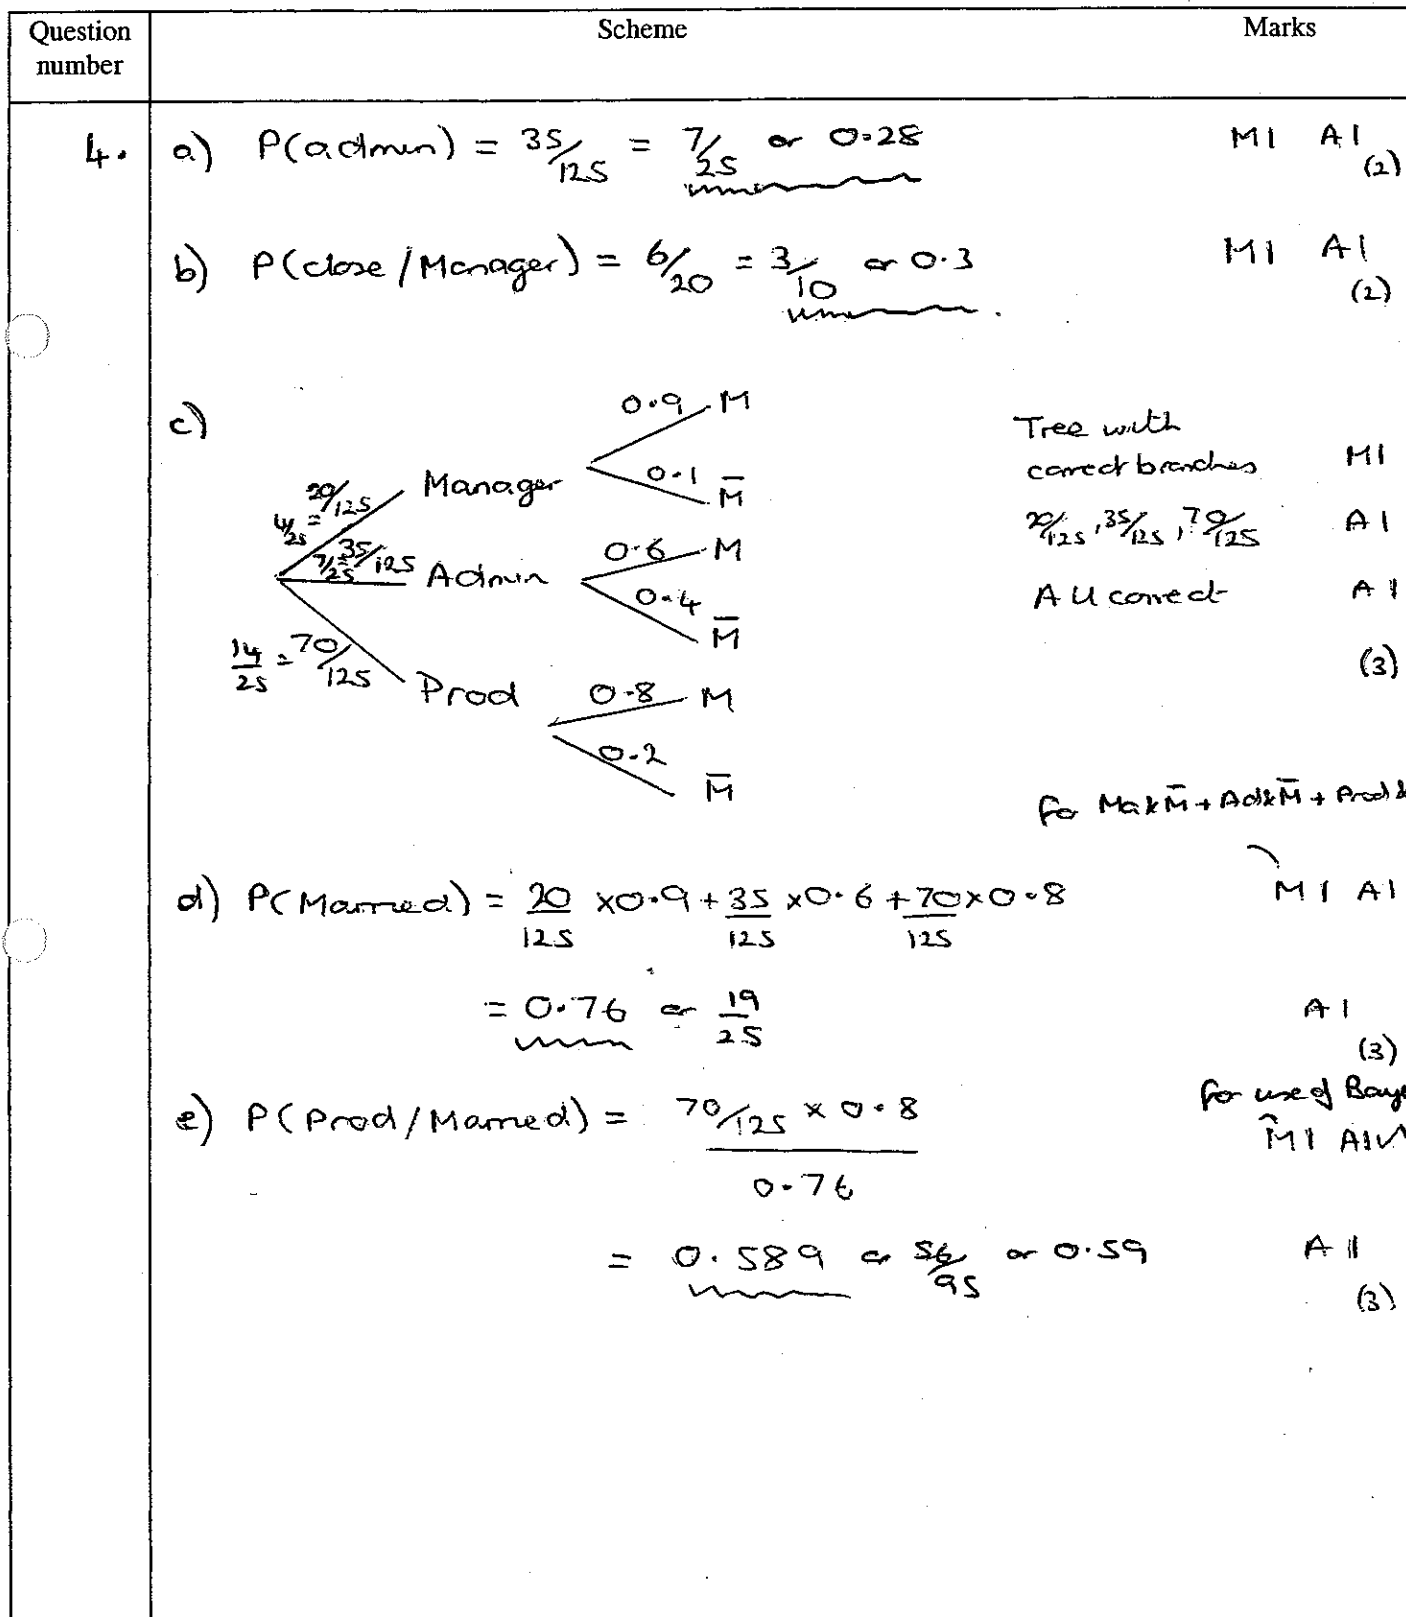 Question number Scheme Marks
4. a) P(admin) = 35/125 = 7/25 or 0.28 M1 A1
(2)
b) P(close/Manager) = 6/20 = 3/10 or 0.3 M1 A1
(2)
c)
0.9 M
Manager
0.1 M̄
4/25 = 20/125
0.6 M
7/25 = 35/125 Admin
0.4 M̄
14/25 = 70/125
Prod 0.8 M
0.2 M̄
Tree with
correct branches M1
20/125, 35/125, 70/125 A1
All correct A1
(3)
for Ma&M̄ + Ad&M̄ + Prod&
d) P(Married) = 20/125 × 0.9 + 35/125 × 0.6 + 70/125 × 0.8 M1 A1
= 0.76 or 19/25 A1
(3)
for use of Baye
e) P(Prod/Married) = 70/125 × 0.8 / 0.76 M1 A1√
= 0.589 or 56/95 or 0.59 A1
(3)